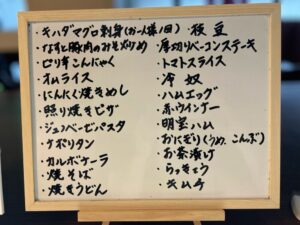 ・キハダマグロ刺身(お一人様1回)
・なすと豚肉のみそ炒め
・ピリ辛こんにゃく
・オムライス
・にんにく焼きめし
・照り焼きピザ
・ジェノベーゼパスタ
・ナポリタン
・カルボナーラ
・焼そば
・焼きうどん
枝豆
・厚切りベーコンステーキ
・トマトスライス
・冷奴
・ハムエッグ
・赤ウインナー
・明宝ハム
・おにぎり(うめ、こんぶ)
・お茶漬け
・らっきょう
・キムチ